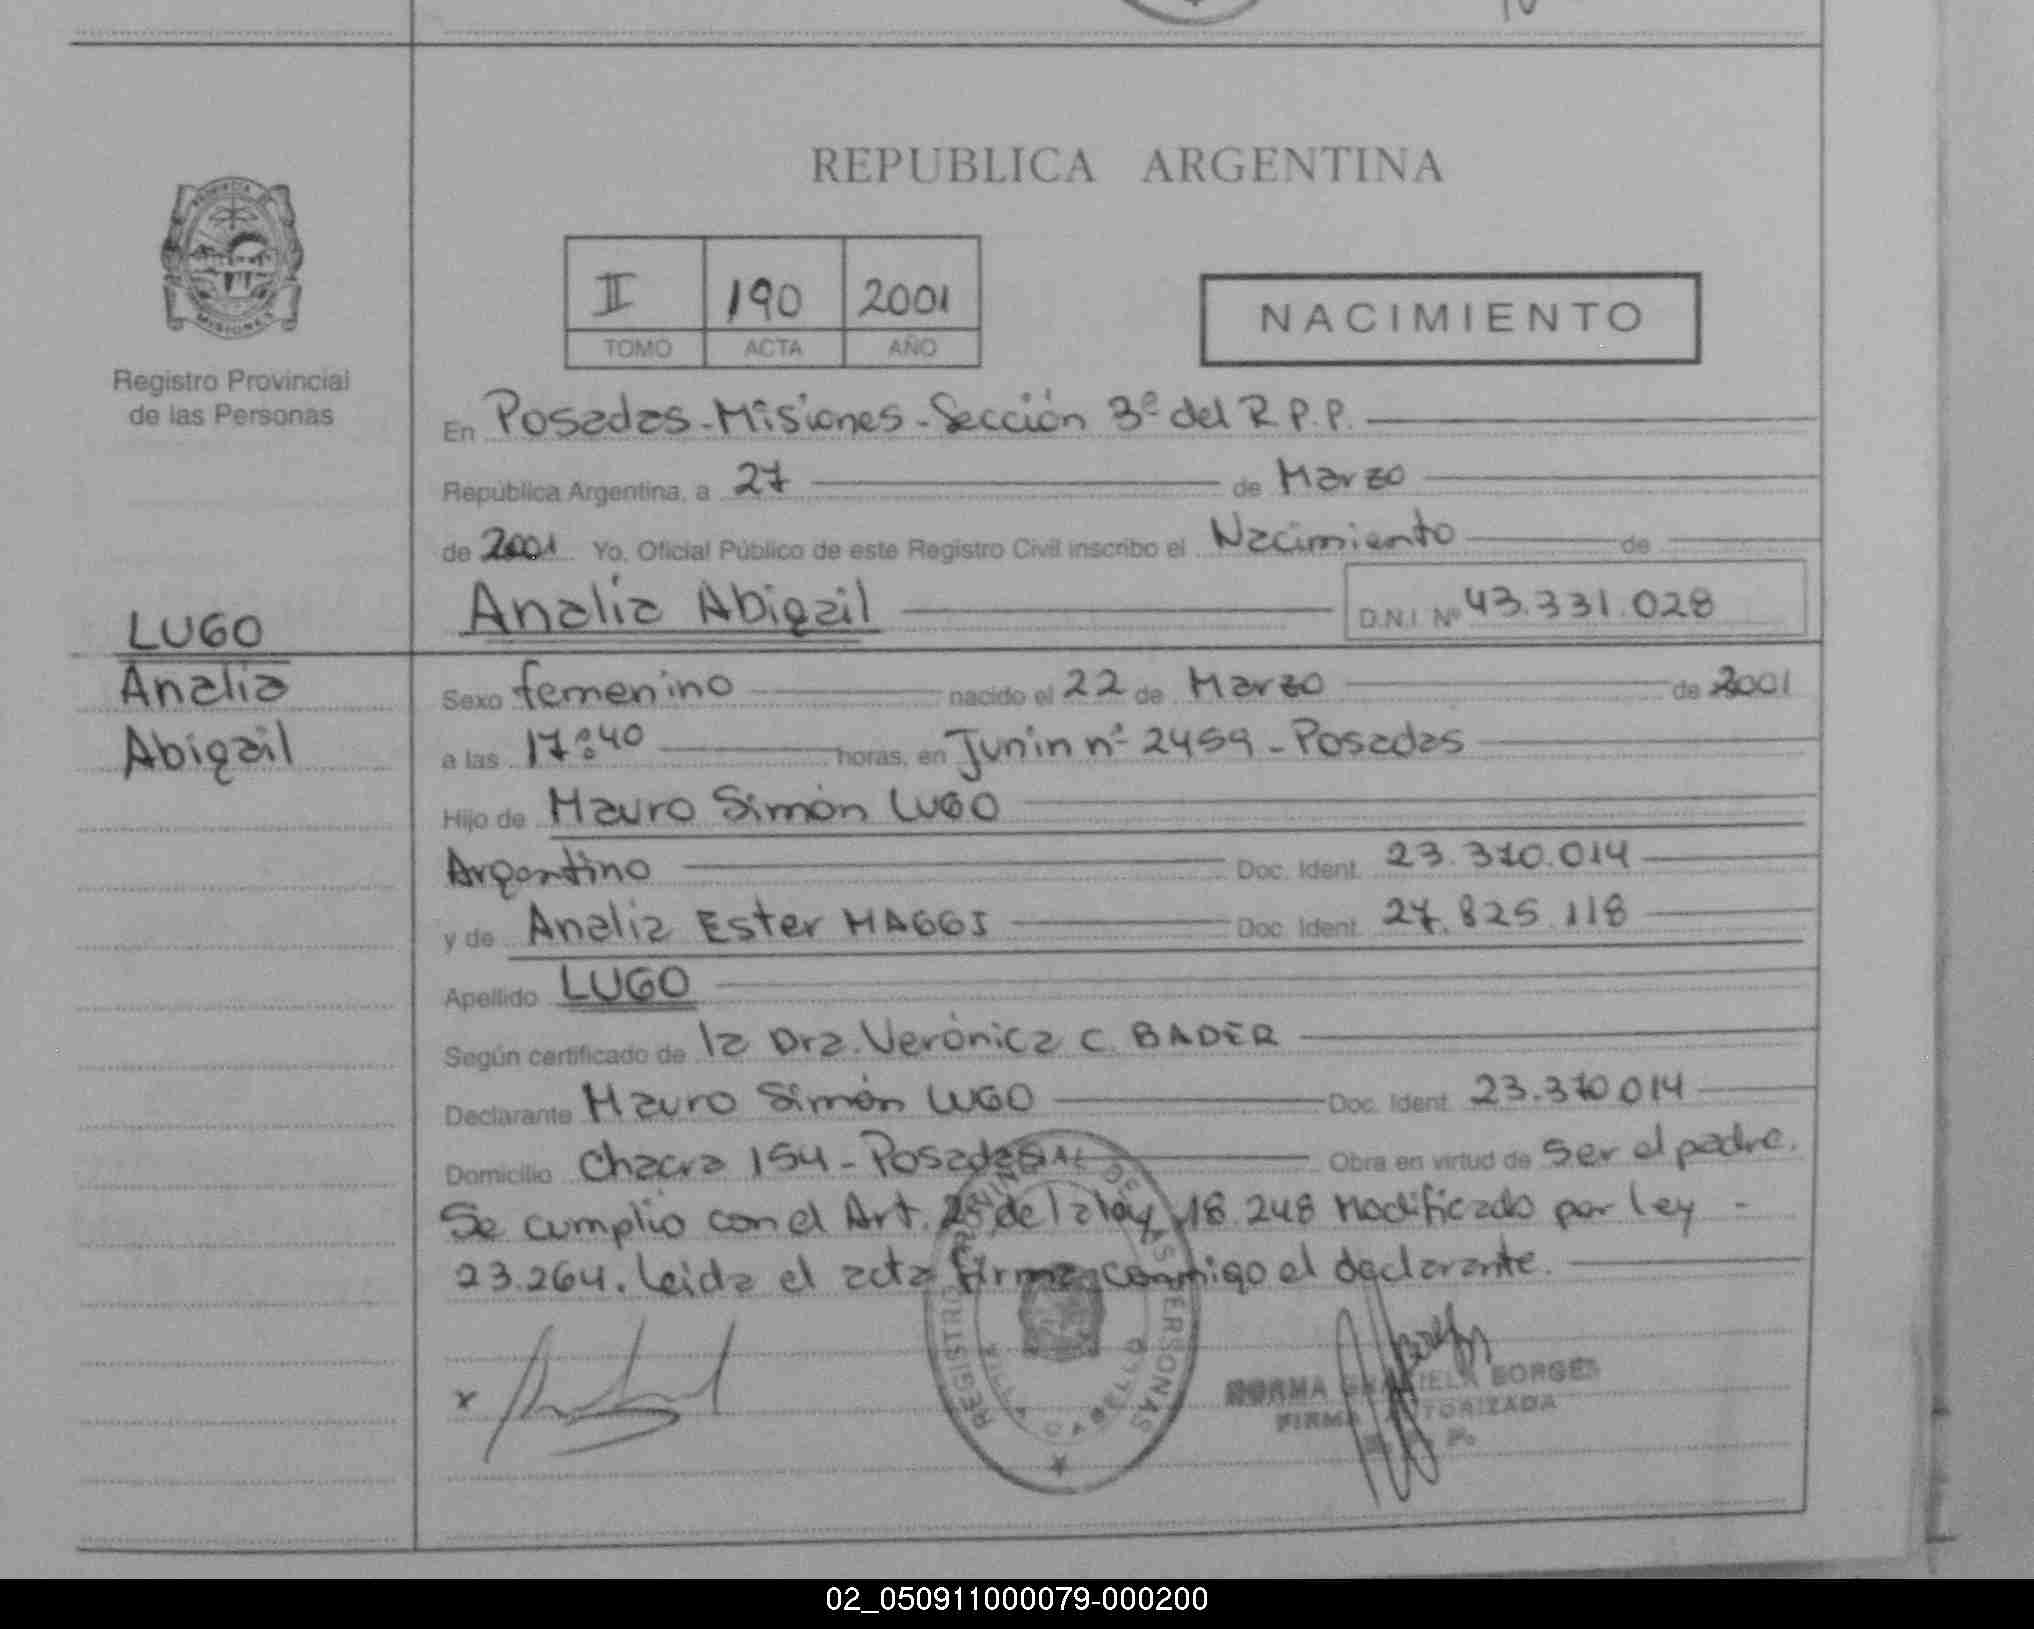 REPUBLICA ARGENTINA
PROVINCIA
MISIONES
Registro Provincial
de las Personas
II 190 2001
TOMO ACTA AÑO
NACIMIENTO
En Posadas - Misiones - Sección 3ª del R.P.P.
República Argentina, a 27 de Marzo
de 2001 Yo, Oficial Público de este Registro Civil inscribo el Nacimiento de
Analía Abigail D.N.I. Nº 43.331.028
LUGO
Analia
Abigail
Sexo femenino nacido el 22 de Marzo de 2001
a las 17:40 horas, en Junin nº 2459 - Posadas
Hijo de Mauro Simón LUGO
Argentino Doc. Ident. 23.370.014
y de Analia Ester MAGGI Doc. Ident. 27.825.118
Apellido LUGO
Según certificado de la Dra. Verónica C. BADER
Declarante Mauro Simón LUGO Doc. Ident. 23.370.014
Domicilio Chacra 154 - Posadas Obra en virtud de ser el padre.
Se cumplió con el Art. 25 de la ley 18.248 Modificado por ley -
23.264. Leida el acta firma conmigo el declarante.
REGISTRO PROVINCIAL DE LAS PERSONAS
VILLA CABELLO
NORMA GRACIELA BORGES
FIRMA AUTORIZADA
02_050911000079-000200